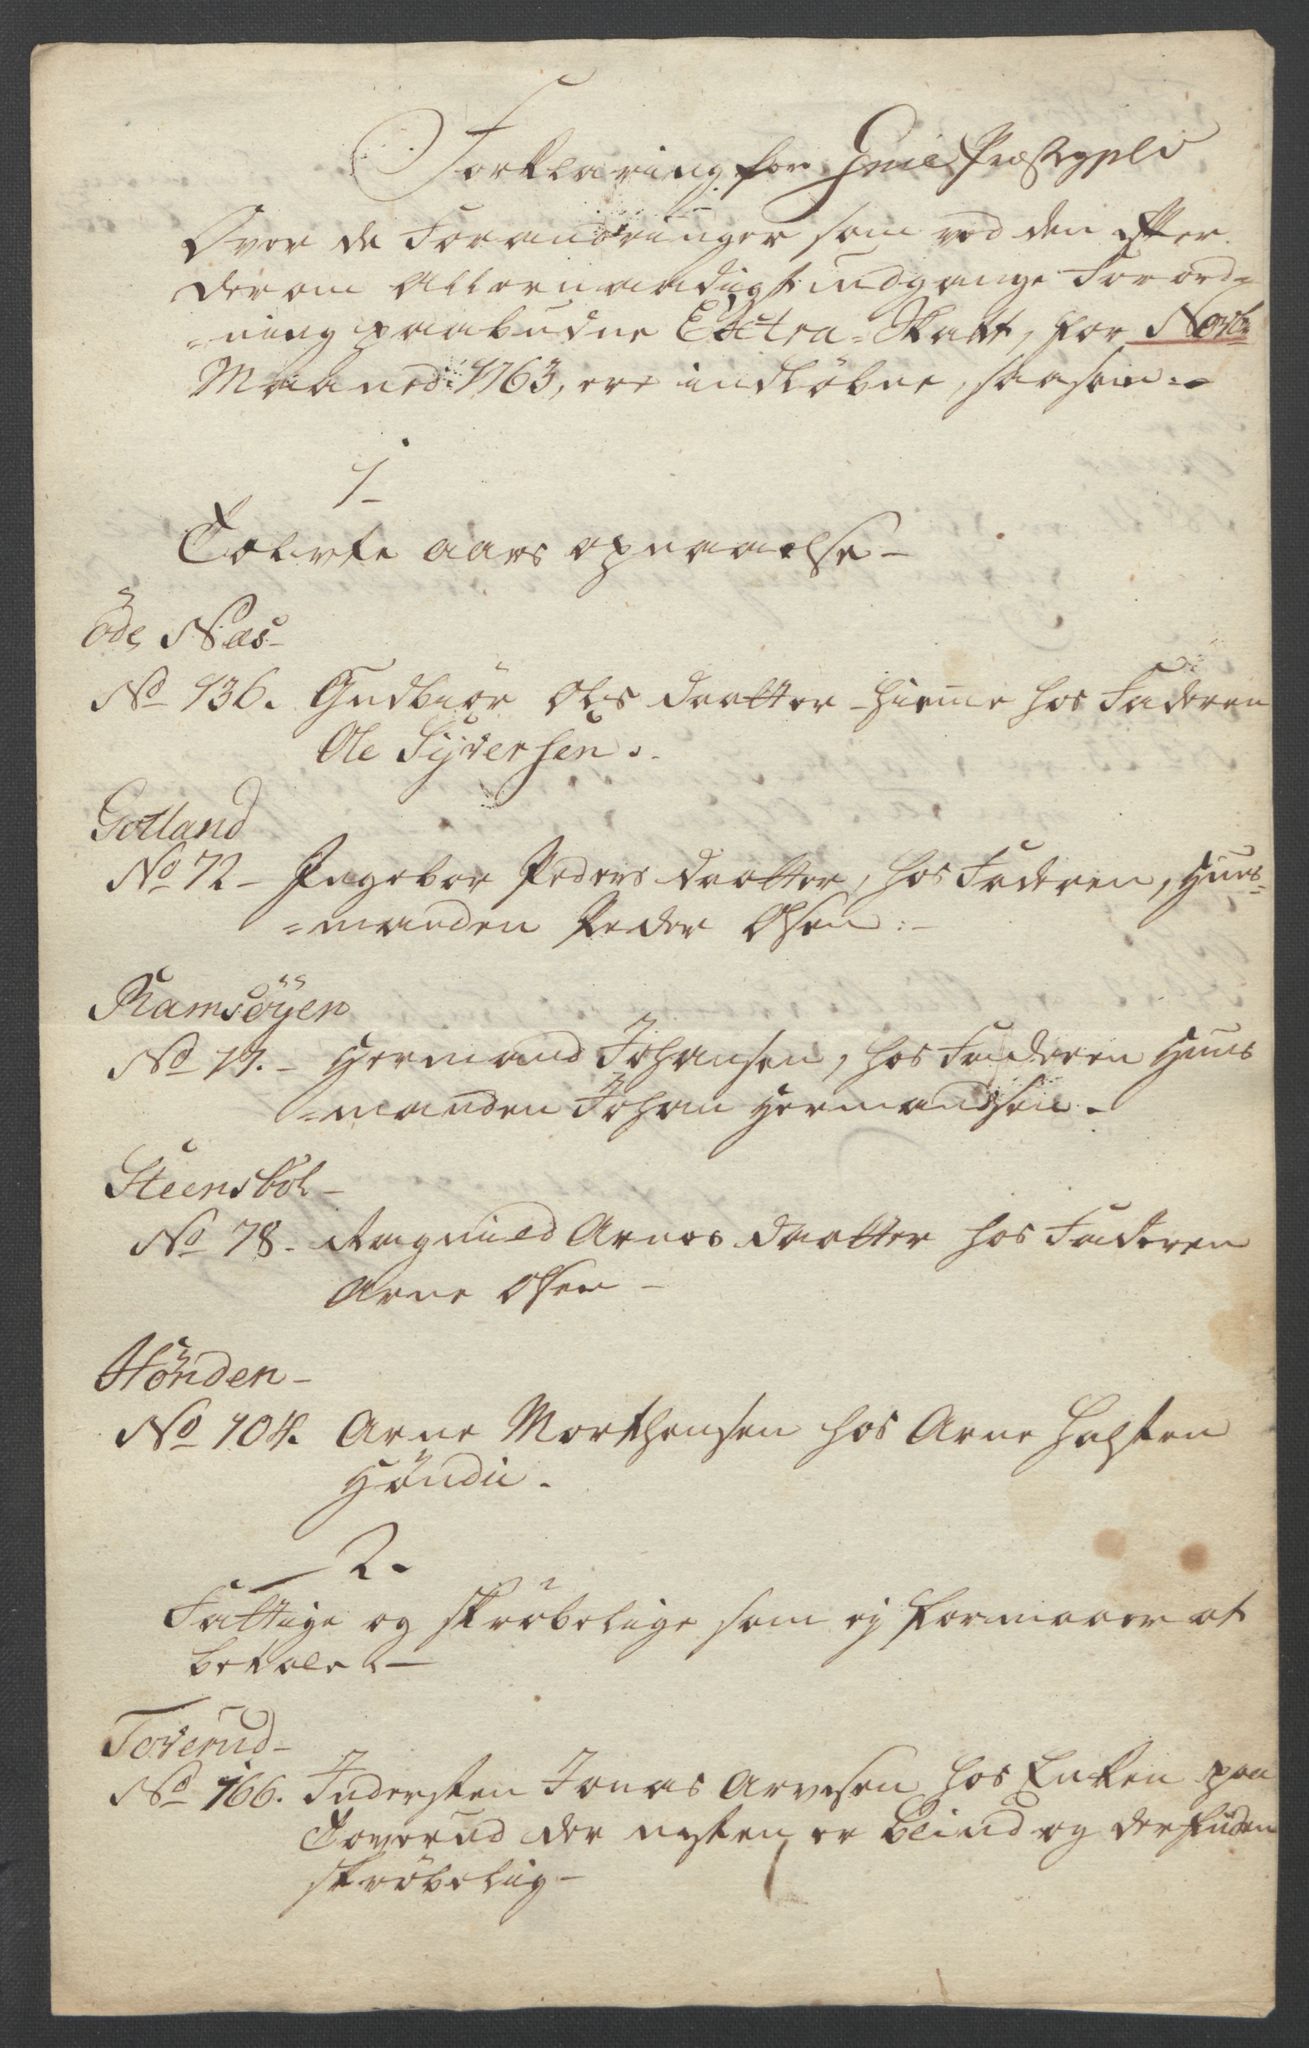 Forklaring for Grue Præstegield
Over de Forandringer som ved den Efter
derom Allernaadigst udgangne Forord=
=ning paabudne Extra-Skatt, for Novbr
Maaned 1763, ere indløbne, saasom:-
1-
Tolvte aars opnaaelse-
öde Næs-
No 136. Gudbiör Ols daatter hieme hos Faderen
Ole Syversen.-
Gotland
No 72- Ingebor Peders daatter, hos Faderen, Huus=
=manden Peder Olsen:-
Ramsöyen
No 77.- Hermand Johansen, hos Faderen Huus
=manden Johan Hermandsen.-
Steensböl-
No 78- Ragnild Arnes daatter hos Faderen
Arne Olsen-
Hönden-
No 104. Arne Morthensen hos Arne Halsten
Höndn.
2.
Fattige og skröbelige som ej formaaer at
betale.-
Toverud-
No 166. Indersten Jonas Arvesen hos Enken paa
Toverud der nesten er blind og desfuden
skröbelig-